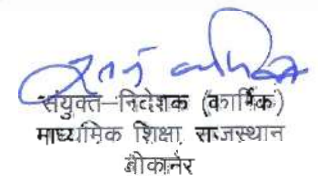 संयुक्त–निदेशक (कार्मिक)
माध्यमिक शिक्षा राजस्थान
बीकानेर